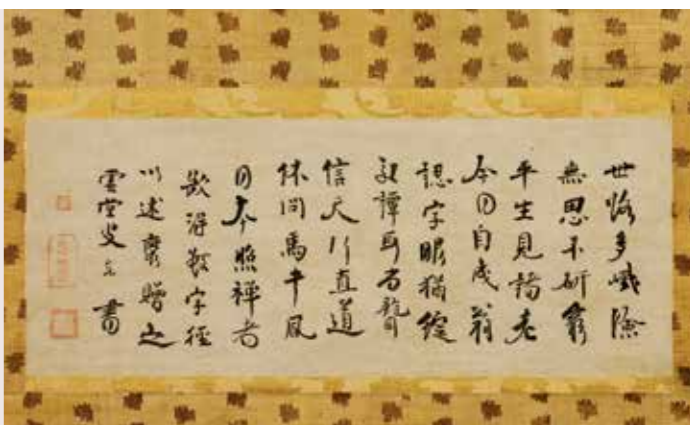 世路多巇險
無思不研窮
平生見諸老
今日自成翁
認字眼猶綻
譚耳尚聾
信天行直道
休問馬牛風
日本照禪者
欲得數字徑
以述懷贈之
虛堂叟 書